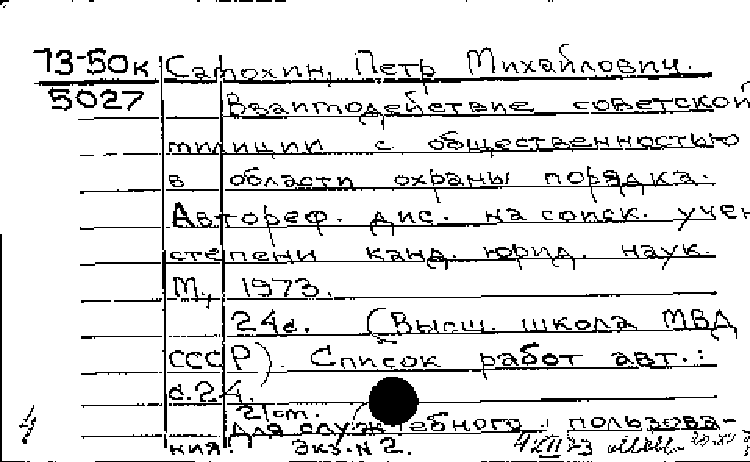 73-50к Самохин, Петр Михайлович.
5027 Взаимодействие советской
милиции с общественностью
в области охраны порядка.
Автореф. дис. на соиск. учен
степени канд. юрид. наук.
М., 1973.
24с. (Высш. школа МВД
СССР). Список работ авт.:
с.24.
2/ст.
Для служебного пользова-
ния. Экз. N 2. 4 XII 73